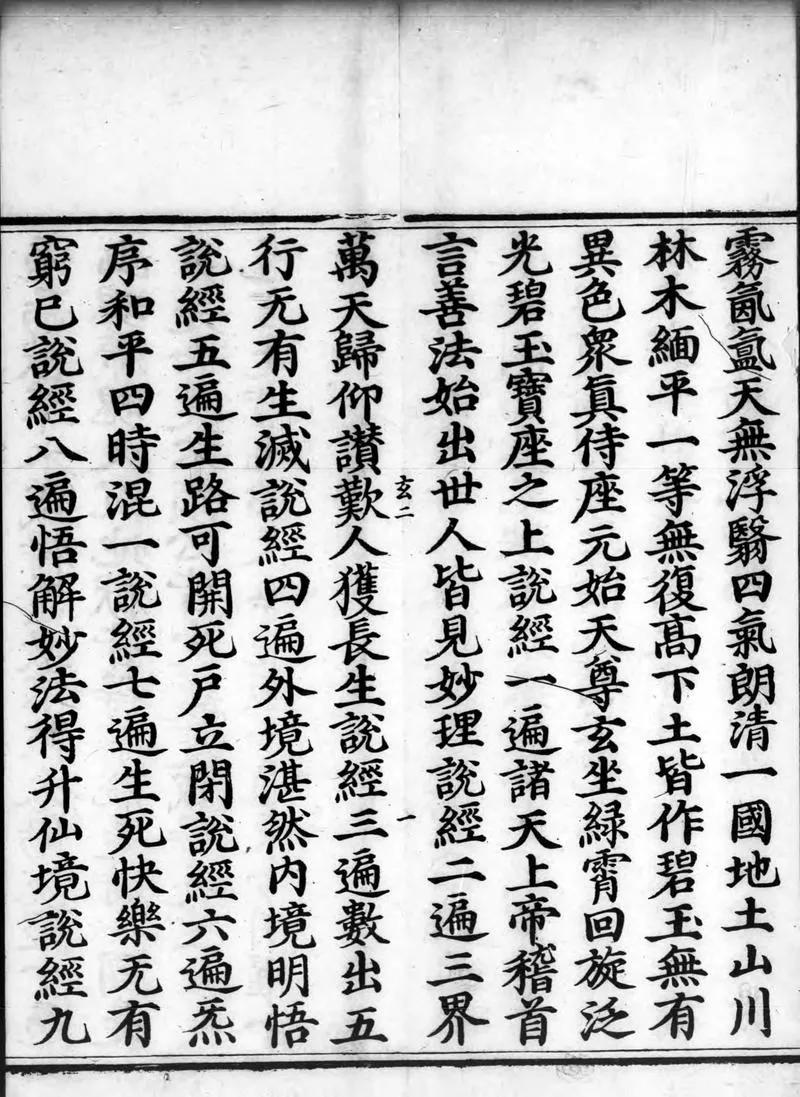 霧氤氳天無浮翳四氣朗清一國地土山川
林木緬平一等無復高下土皆作碧玉無有
異色衆真侍座元始天尊玄坐綠霄回旋泛
光碧玉寶座之上說經一遍諸天上帝稽首
言善法始出世人皆見妙理說經二遍三界
玄二
一
萬天歸仰讃歎人獲長生說經三遍數出五
行无有生滅說經四遍外境湛然内境明悟
說經五遍生路可開死戶立閉說經六遍炁
序和平四時混一說經七遍生死快樂无有
窮已說經八遍悟解妙法得升仙境說經九